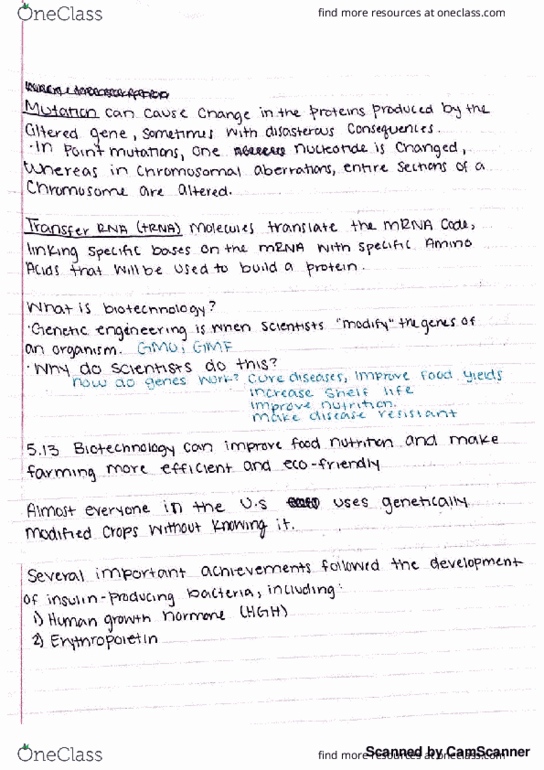 OneClass
find more resources at oneclass.com
Mutation can cause change in the proteins produced by the
altered gene, sometimes with disasterous consequences.
·In point mutations, one nucleotide is changed,
whereas in chromosomal aberrations, entire sections of a
chromosome are altered.
Transfer RNA (tRNA) molecules translate the mRNA code,
linking specific bases on the mRNA with specific Amino
Acids that will be used to build a protein.
What is biotechnology?
·Genetic engineering is when scientists "modify" the genes of
an organism. GMO, GMF
·Why do scientists do this?
how do genes work? Cure diseases, improve food yields
increase shelf life
improve nutrition.
make disease resistant
5.13 Biotechnology can improve food nutrition and make
farming more efficient and eco-friendly
Almost everyone in the U.S uses genetically
modified crops without knowing it.
Several important achievements followed the development
of insulin-producing bacteria, including:
1) Human growth hormone (HGH)
2) Erythropoietin
OneClass
find more resources at oneclass.com
Scanned by CamScanner